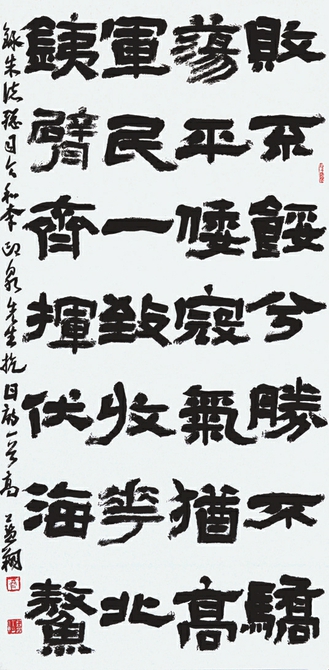 敗不餒兮勝不驕
蕩平倭寇氣猶高
軍民一致收華北
銕臂齊揮伏海鰲
錄朱德總司令和李印泉先生抗日詩一首高翔